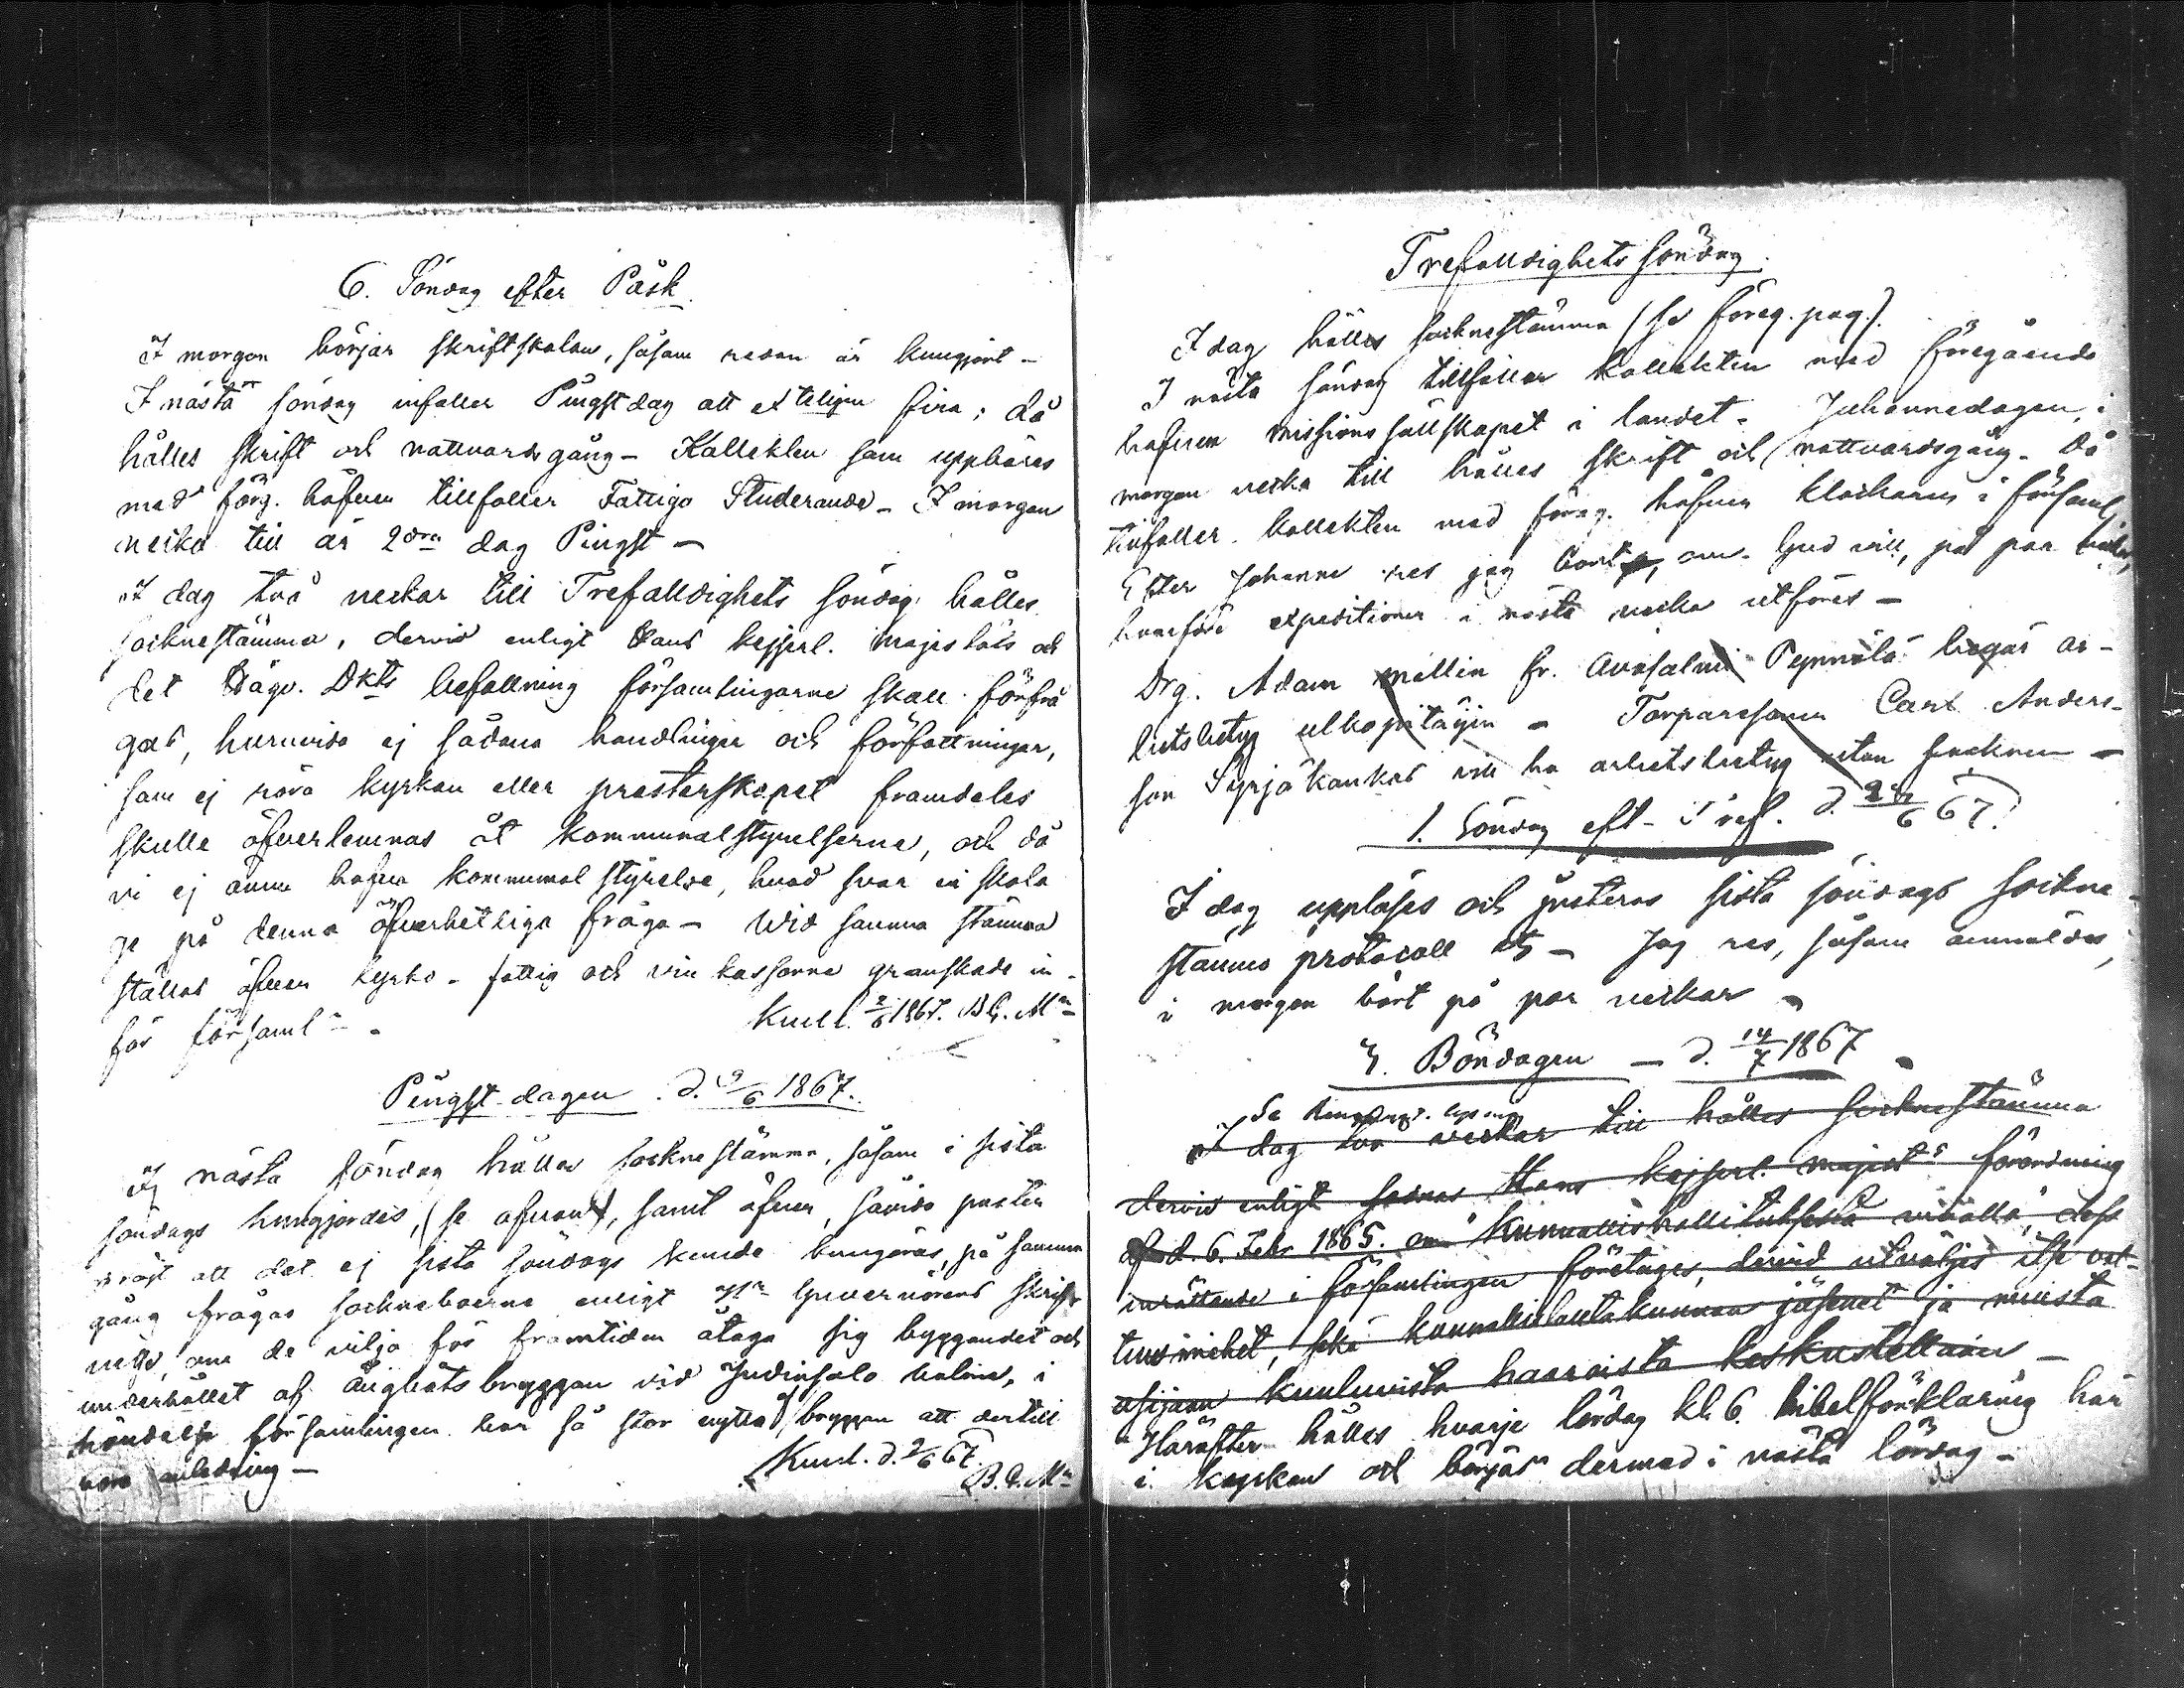 6. Söndag efter Påsk.
I morgon börjar skriftskolan, såsom redan är kungjort –
I nästa söndag infaller Pingstdag att et teligen fira; då
hålles skrift och nattvardsgång – Kollekten som uppbäres
med förg. håfven tillfaller Fattiga Studerande – I morgon
vecka till är 2dra dag Pingst –
I dag två veckor till Trefalldighets söndag hålles
socknestämma, dervid enligt Hans kejserl. majestäts och
det Dkts befallning församlingarne skall förfrå
gas, huruvida ej sådana handlingar och författningar,
som ej röra kyrkan eller presterskapet framdeles
skulle öfverlemnas åt kommunalstyrelserne, och då
vi ej ännu hafva kommunal styrelse, hvad svar vi skola
ge på denna öfverhetliga fråga – Wid samma stämma
ställas äfven kyrko- fattig och kassorne granskade in-
för församl –
Kund. 2/6 1867. B.G. Mn
Pingst-dagen d. 9/6 1867.
I nästa söndag hålles sockne stämma, såsom i sista
söndags kungjordes, (se afvan), samt äfven, såvida posten
att det ej sista söndags kunde kungöras, på samma
gång frågas sockneboerne enligt Hr Guvernörens skrif
velse, om de vilja för framtiden åtaga sig byggandet och
underhållet af ångbåts bryggan vid Judinsalo holme, i
händelse församlingen har så stor nytta af bryggan att dertill
vore anledning –
Kund. d. 9/6 67
B.G. Mn
Trefalldighets söndag.
I dag hålles socknestämma (se föreg. pag.).
I nästa söndag tillfaller kollekten med föregående
håfven missions sällskapet i landet – Johannedagen, i
morgon vecka till hålles skrift och nattvardsgång – Då
tillfaller kollekten med föreg. håfven klockaren i församl.
Efter Johanne res jag bort, om Gud vill, på par veckor,
hvarföre expeditioner i nästa vecka utföres –
Drg. Adam Mellin fr. Avosalmi Pynnölä begär ar-
betsbetyg ulkopitäjin – Torparesonen Carl Anders-
son Syrjäkankas vill ha arbetsbetyg utom socknen –
1. Söndag eft. Tref. d. 6 67.
I dag uppläses och justeras sista söndags sockne-
stämmo protocoll – Jag res, såsom anmäldes,
i morgon bort på par veckor –
3. Böndagen – d. 14/7 1867
Se
I dag två veckor till hålles sockne stämma
dervid enligt Hans kejserl. majets förordning
af d. 6. Febr 1865. om "kunnallishallituksesta maalla", dess
inrättande i församlingen företages, dervid utväljes itse val-
tuusmiehet, sekä kunnallislautakunnan jäsenet ja muista
asijaan kuuluvista haaroista keskustellaan –
Häräfter hålles hvarje lördag kl. 6. bibelförklaring här
i kyrkan och börjas dermed i nästa lördag –